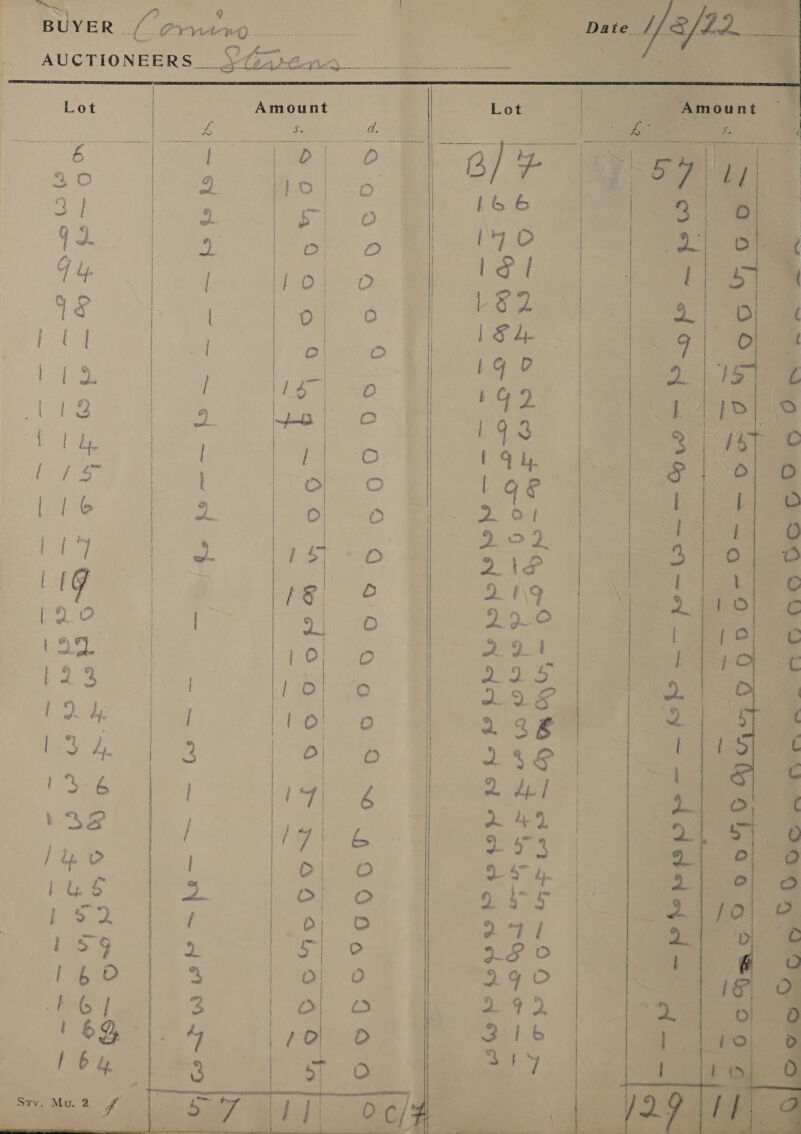 BUYER Corning Date 1/8/22
AUCTIONEERS Stevens
Lot Amount Lot Amount
£ s. d. £ s.
6 1 0 0 B/F 57 11
30 2 10 0 166 3 0
31 2 5 0 170 2 0
92 2 0 0 181 1 5
94 1 10 0 182 2 0
98 1 0 0 184 9 0
111 1 0 0 190 2 15
112 1 15 0 192 1 10 0
113 2 0 193 3 15 0
114 1 1 0 194 8 0 0
115 1 0 0 198 1 1 0
116 2 0 0 201 1 1 0
117 2 15 0 202 3 0 0
119 18 0 218 1 1 0
120 1 2 0 219 2 10 0
122 10 0 220 1 10 0
123 1 10 0 221 1 10 0
124 1 10 0 225 2 0
134 3 0 0 228 2 5
136 1 17 6 236 1 15
138 1 17 6 238 1 8
140 1 0 0 241 2 0
145 2 0 0 242 2 5 0
152 1 0 0 253 2 0 0
159 2 5 0 254 2 0 0
160 3 0 0 255 2 10 0
161 3 0 0 271 2 0 0
162 4 10 0 280 1 0
164 3 5 0 290 18 0
292 2 0 0
316 1 10 0
317 1 10 0
Srv. Mu. 2 57 11 0 c/f 129 11 0